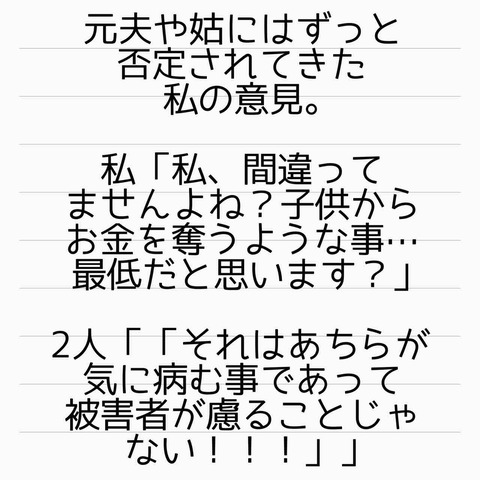 元夫や姑にはずっと
否定されてきた
私の意見。
私「私、間違って
ませんよね？子供から
お金を奪うような事…
最低だと思います？」
2人「「それはあちらが
気に病む事であって
被害者が慮ることじゃ
ない！！！」」